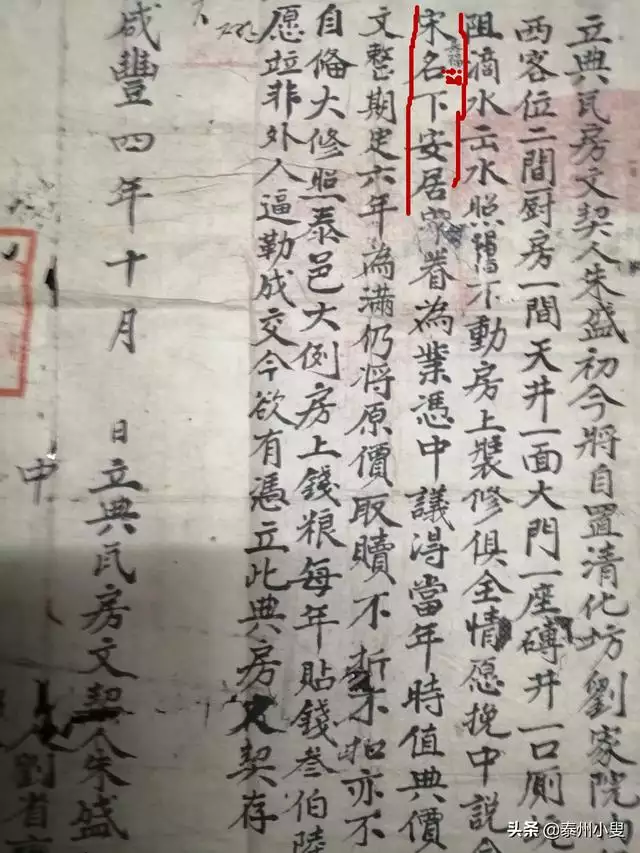 立典瓦房文契人朱盛初今將自置清化坊劉家院內
西客位二間厨房一間天井一面大門一座磚井一口厠
阻滴水出水照舊不動房上裝修俱全情愿挽中說合
宋名下安居眷為業憑中議得當年時值典價
文整期定六年為滿仍將原價取贖不折不扣亦不
自備大修照泰邑大例房上錢粮每年貼錢叁伯陸
愿並非外人逼勒成交今欲有憑立此典房文契存
咸豐四年十月 日立典瓦房文契人朱盛
中 人劉省
头条 @泰州小叟